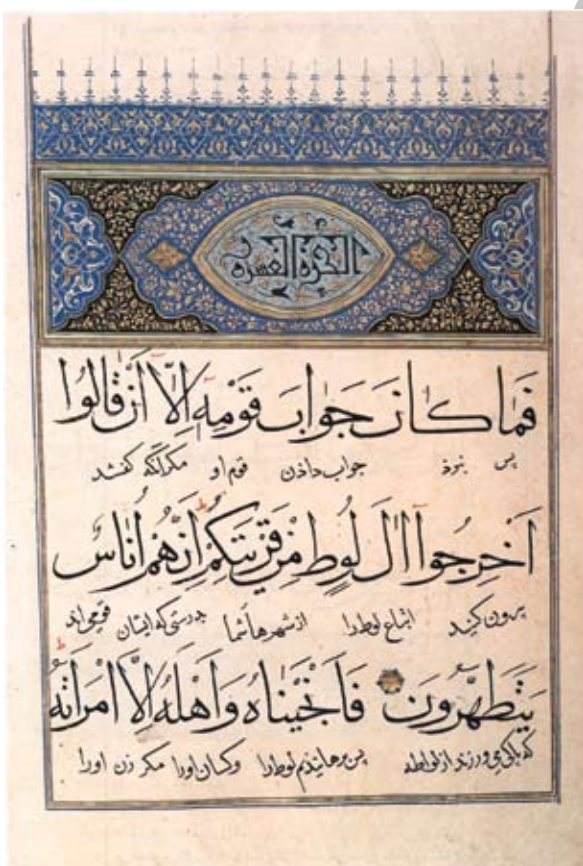 الجزء العشرون
فَمَا كَانَ جَوَابَ قَوْمِهِ إِلَّا أَنْ قَالُوا
پس نبوذ جواب داذن قوم او مكر انكه كفتند
أَخْرِجُوا آلَ لُوطٍ مِنْ قَرْيَتِكُمْ إِنَّهُمْ أُنَاسٌ
برون كنيد اتباع لوط را از شهرهاء شما بدرستى كه ايشان قومى اند
يَتَطَهَّرُونَ فَأَنْجَيْنَاهُ وَأَهْلَهُ إِلَّا امْرَأَتَهُ
كه پاكى مى ورزند از لواطه پس برهانيذيم لوط را وكسان اورا مكر زن اورا